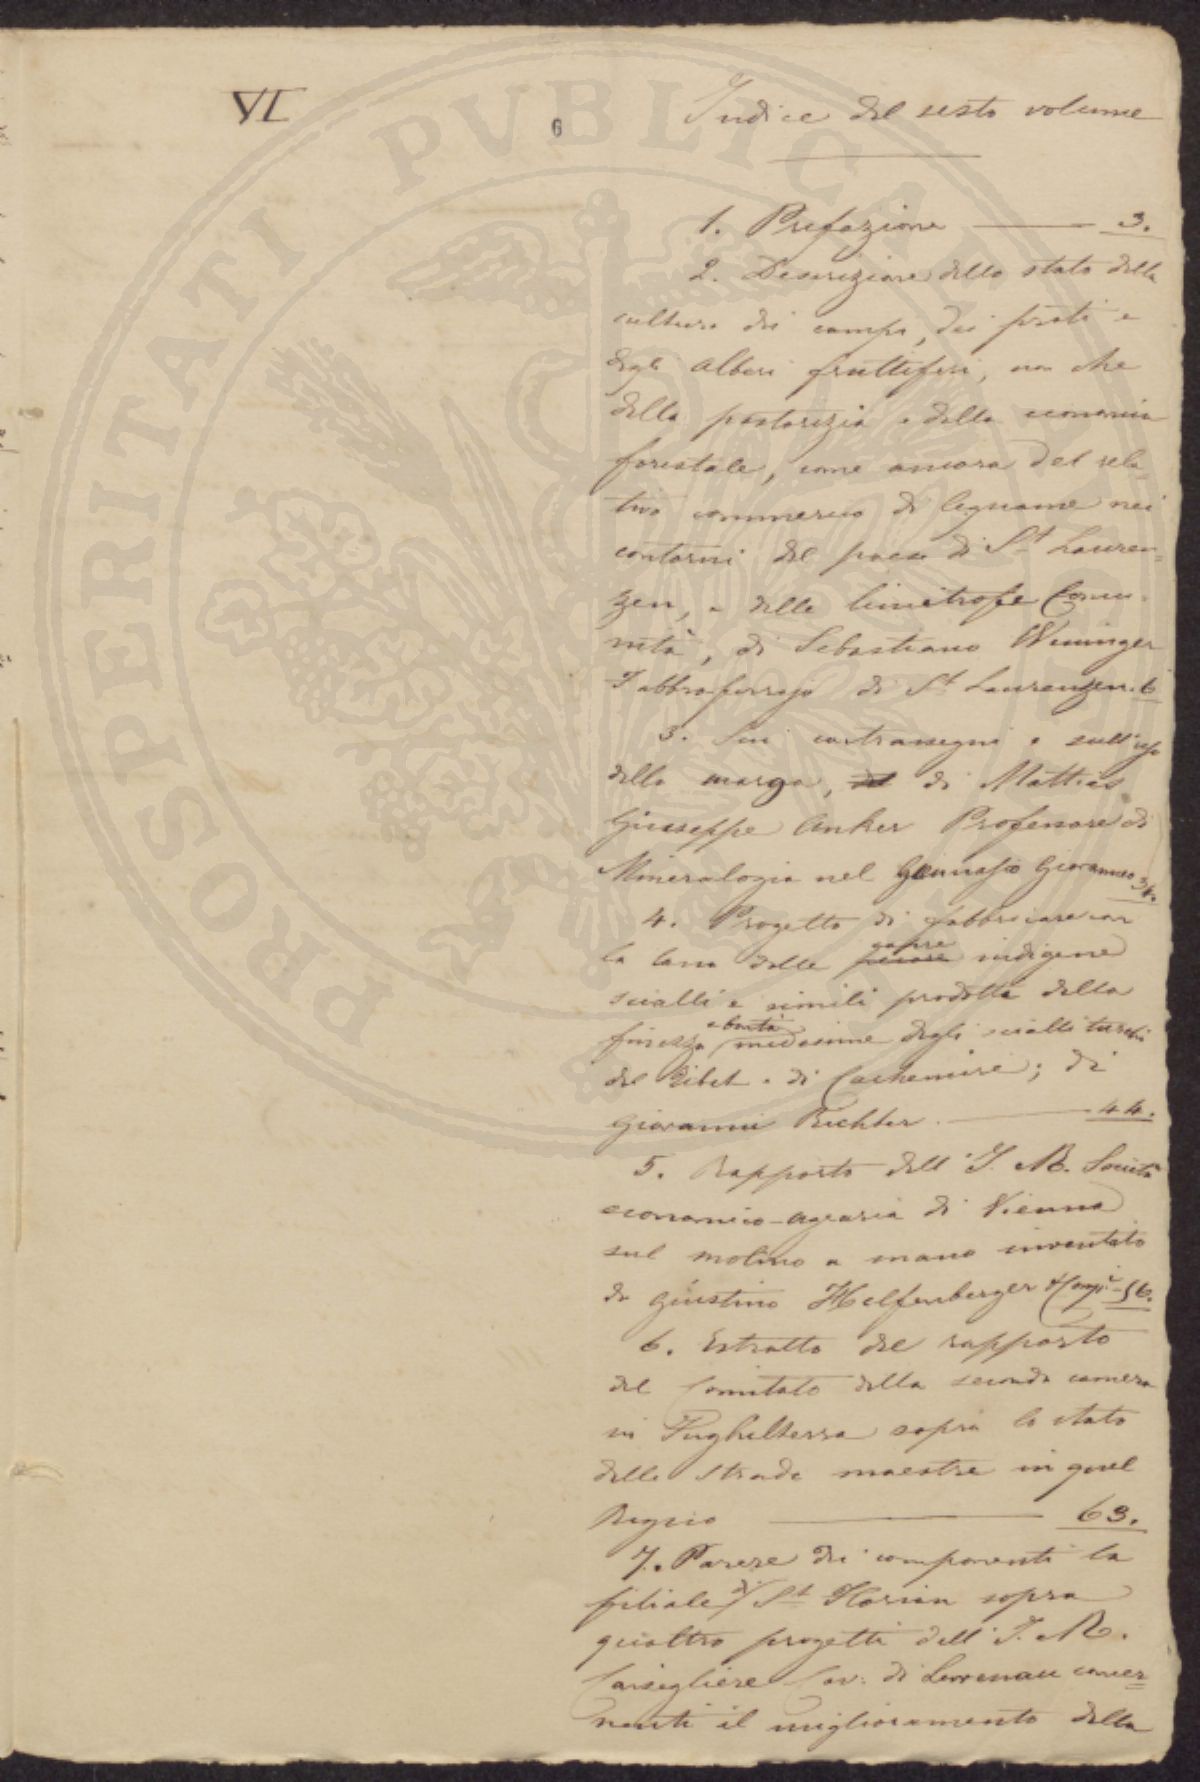 VI
6
Indice del sesto volume
1. Prefazione 3.
2. Descrizione dello stato della
cultura dei campi, dei prati e
degli alberi fruttiferi, non che
della pastorizia e della economia
forestale, come ancora del rela-
tivo commercio di legname nei
contorni del paese di St Lauren=
zen, e delle limitrofe Comu-
nità, di Sebastiano Weninger
Fabbroferrajo di St Laurenzen. 6
3. Sui contrassegni e sull'uso
della marga, di Mattias
Giuseppe Anker Professore di
Mineralogia nel Ginnasio Gioanneo 34.
4. Progetto di fabbricare con
la lana delle capre indigene
scialli e simili prodotti della
finezza e bontà medesime degli scialli turchi
del Tibet e di Cachemire; di
Giovanni Richter. 44.
5. Rapporto dell'I. R. Società
economico-agraria di Vienna
sul molino a mano inventato
da Giustino Helfenberger 56.
6. Estratto del rapporto
del Comitato della seconda camera
in Inghilterra sopra lo stato
delle strade maestre in quel
Regno 63.
7. Parere dei componenti la
filiale di St Florian sopra
quattro progetti dell'I. R.
Consigliere Cav: di concer=
nenti il miglioramento della
PROSPERITATI PVBLICAE